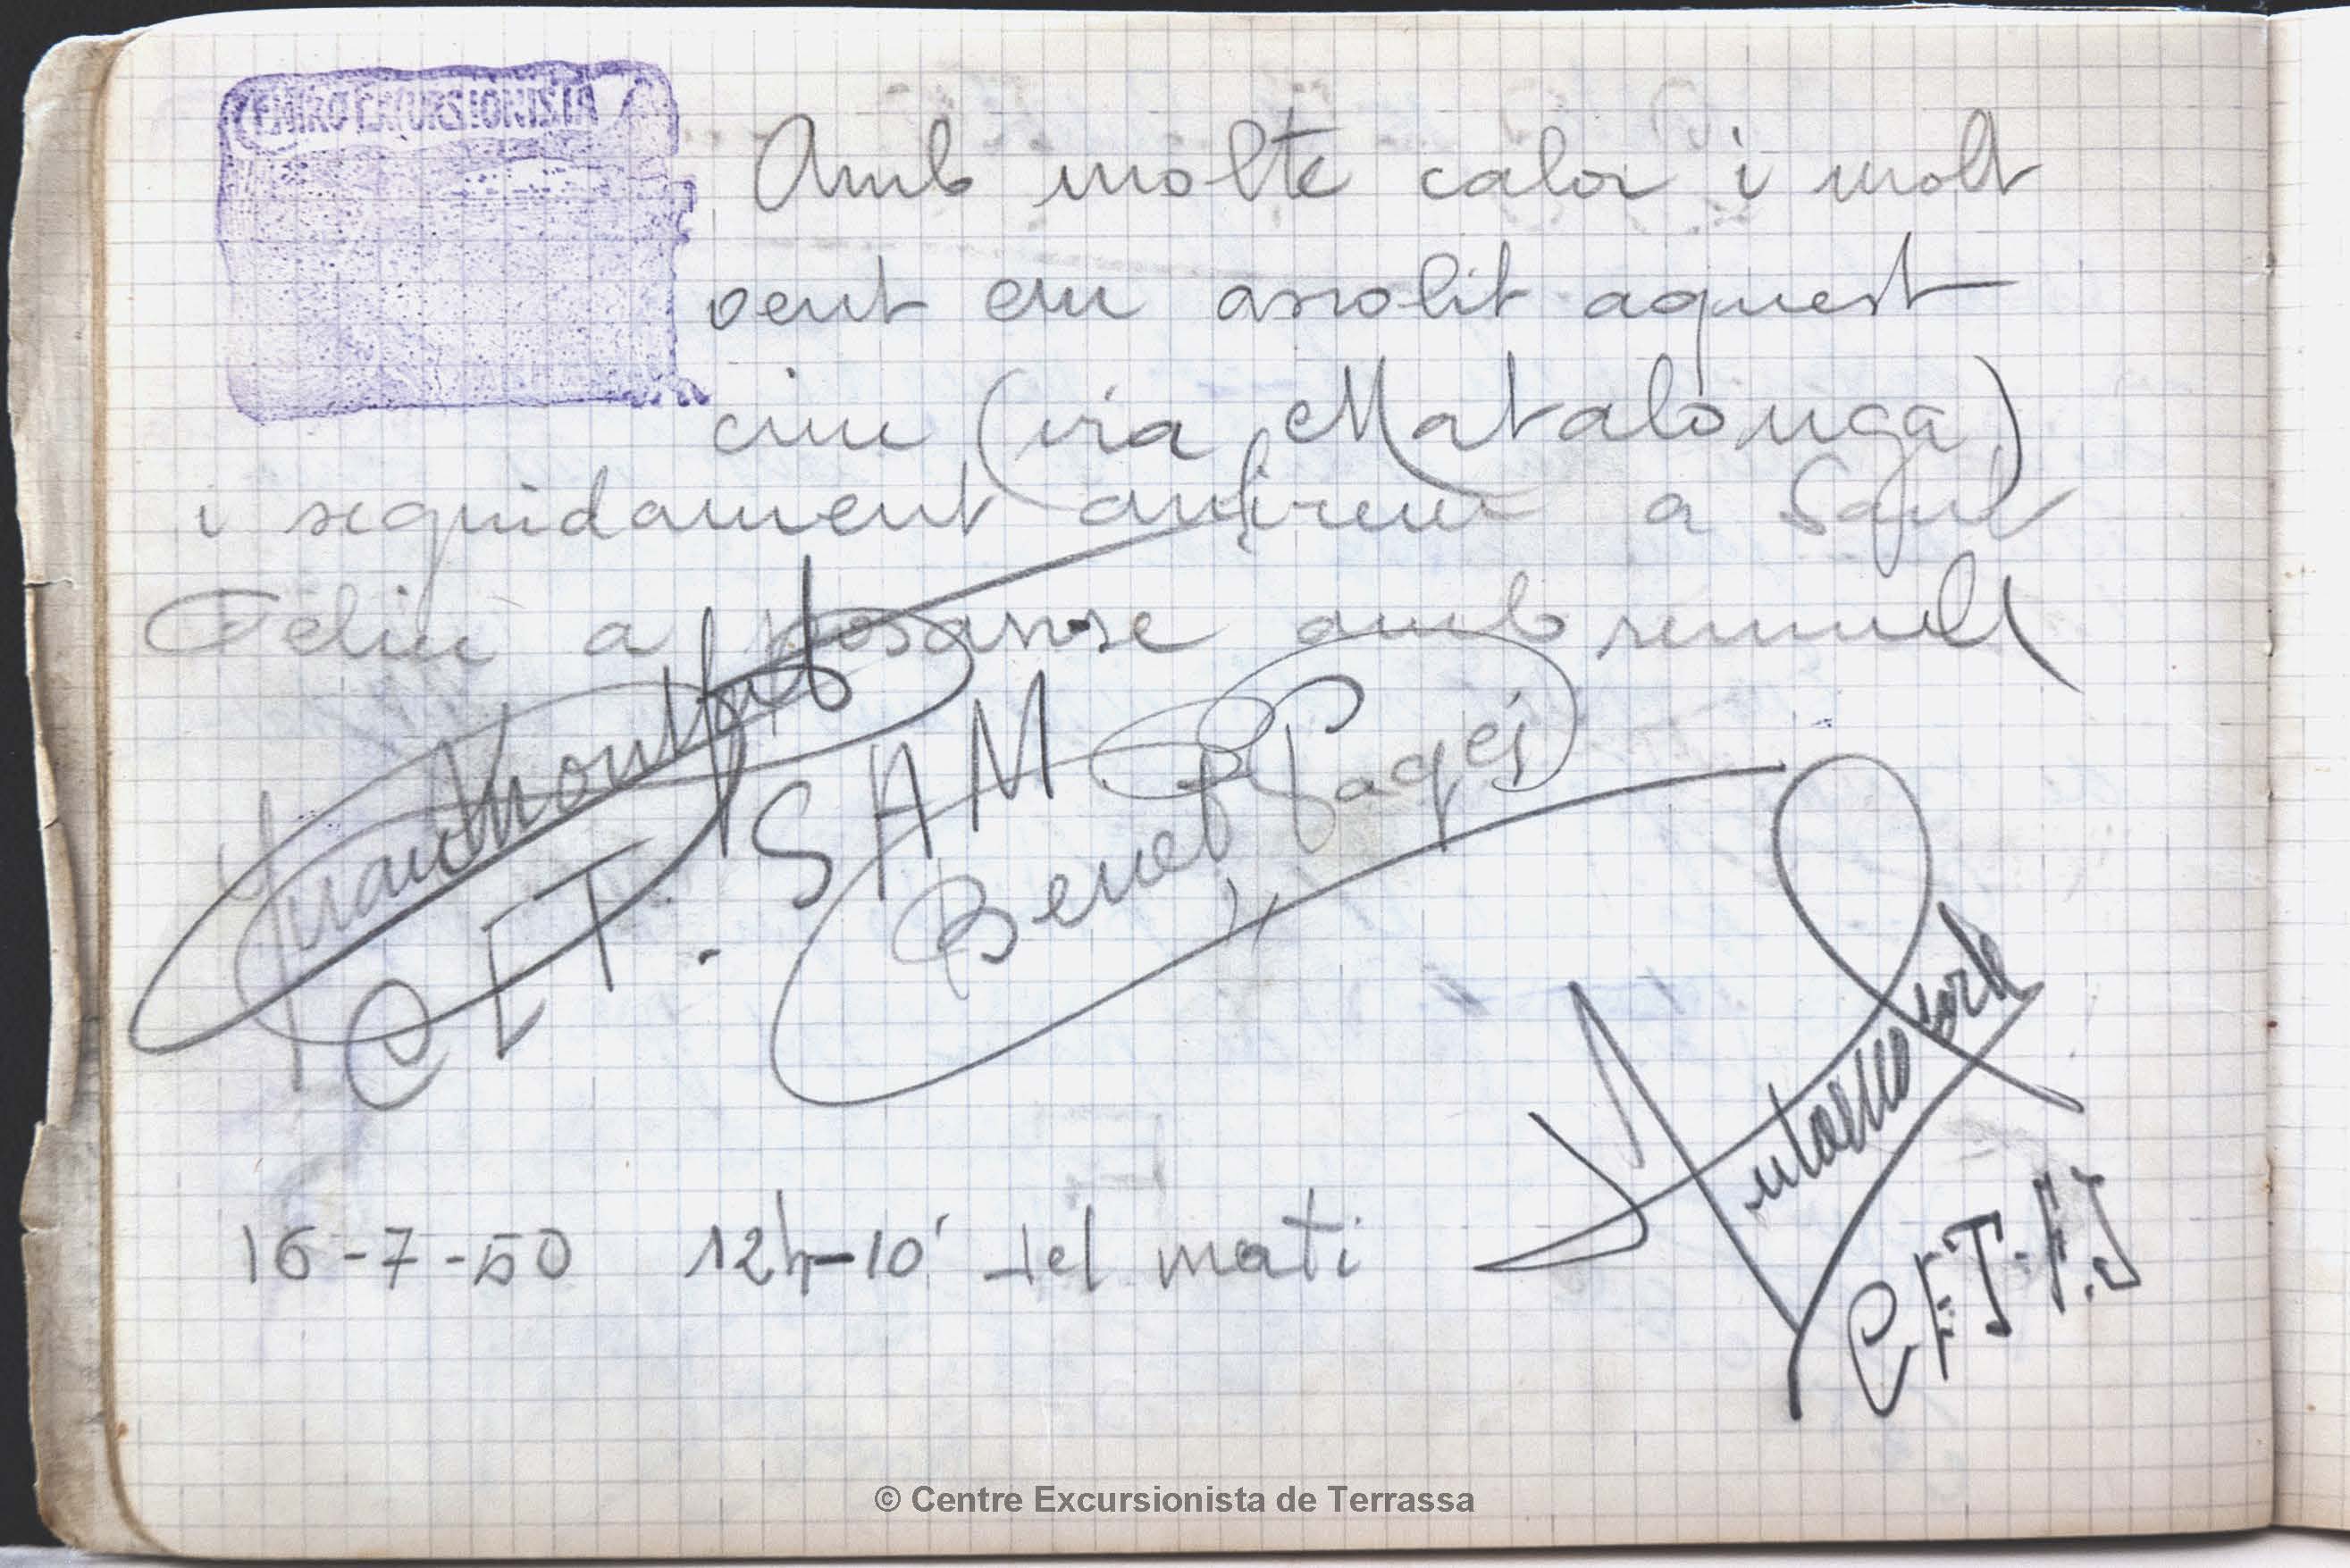 CENTRO EXCURSIONISTA
Amb molte calor i molt
vent em assolit aquest
cim (via Matalonga)
i seguidament anirem a Sant
Feliu a posansse amb remull
Juan Montllat
CET. SAM
Benet Pagés
Antonio
C.E.T-A.J
16-7-50 12h-10' del mati
© Centre Excursionista de Terrassa